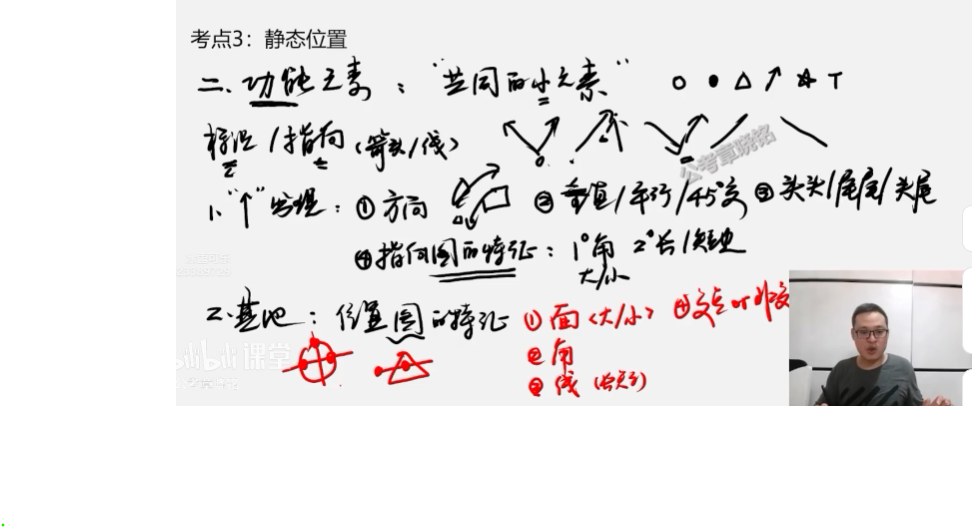 考点3：静态位置
二、功能元素：“共同的小元素” ○ ● △ ↗ ☆ T
标识/指向(箭头/线)
公考章晓铭
1、“↑”出现：①方向 ②垂直/平行/45°交 ③头头/尾尾/头尾
④指向图的特征：1°角 2°长/短边
大/小
2、基地：位置图的特征 ①面（大/小） ④交点or外交
②角
③线
bilibili 课堂